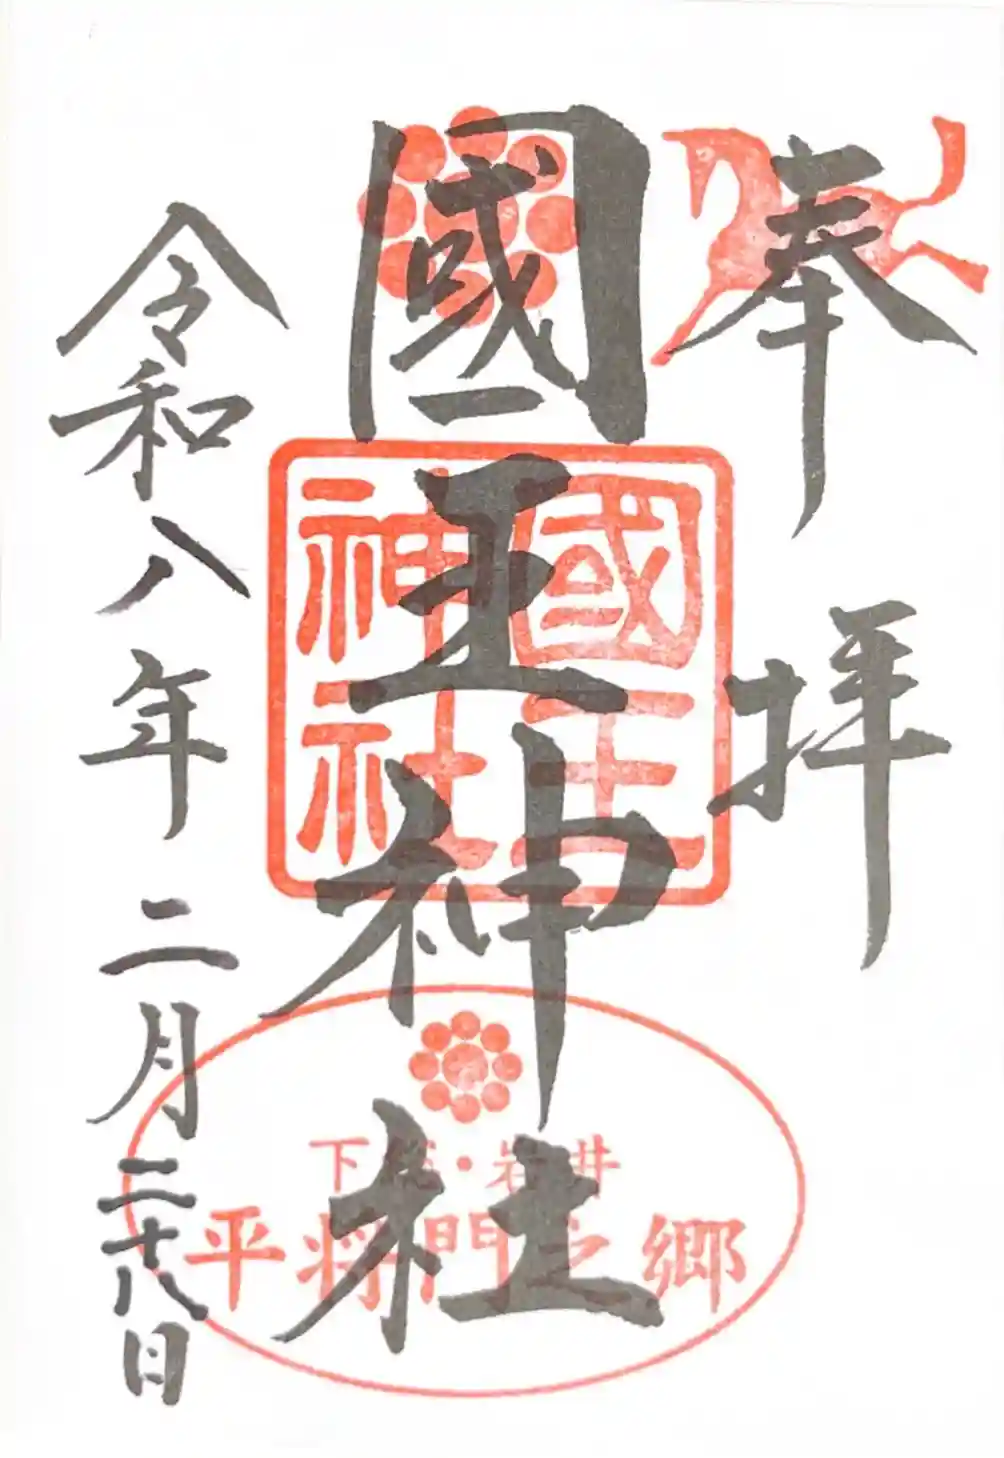 奉拝
國王神社
國王
神社
下総・岩井
平将門之郷
令和八年二月二十八日